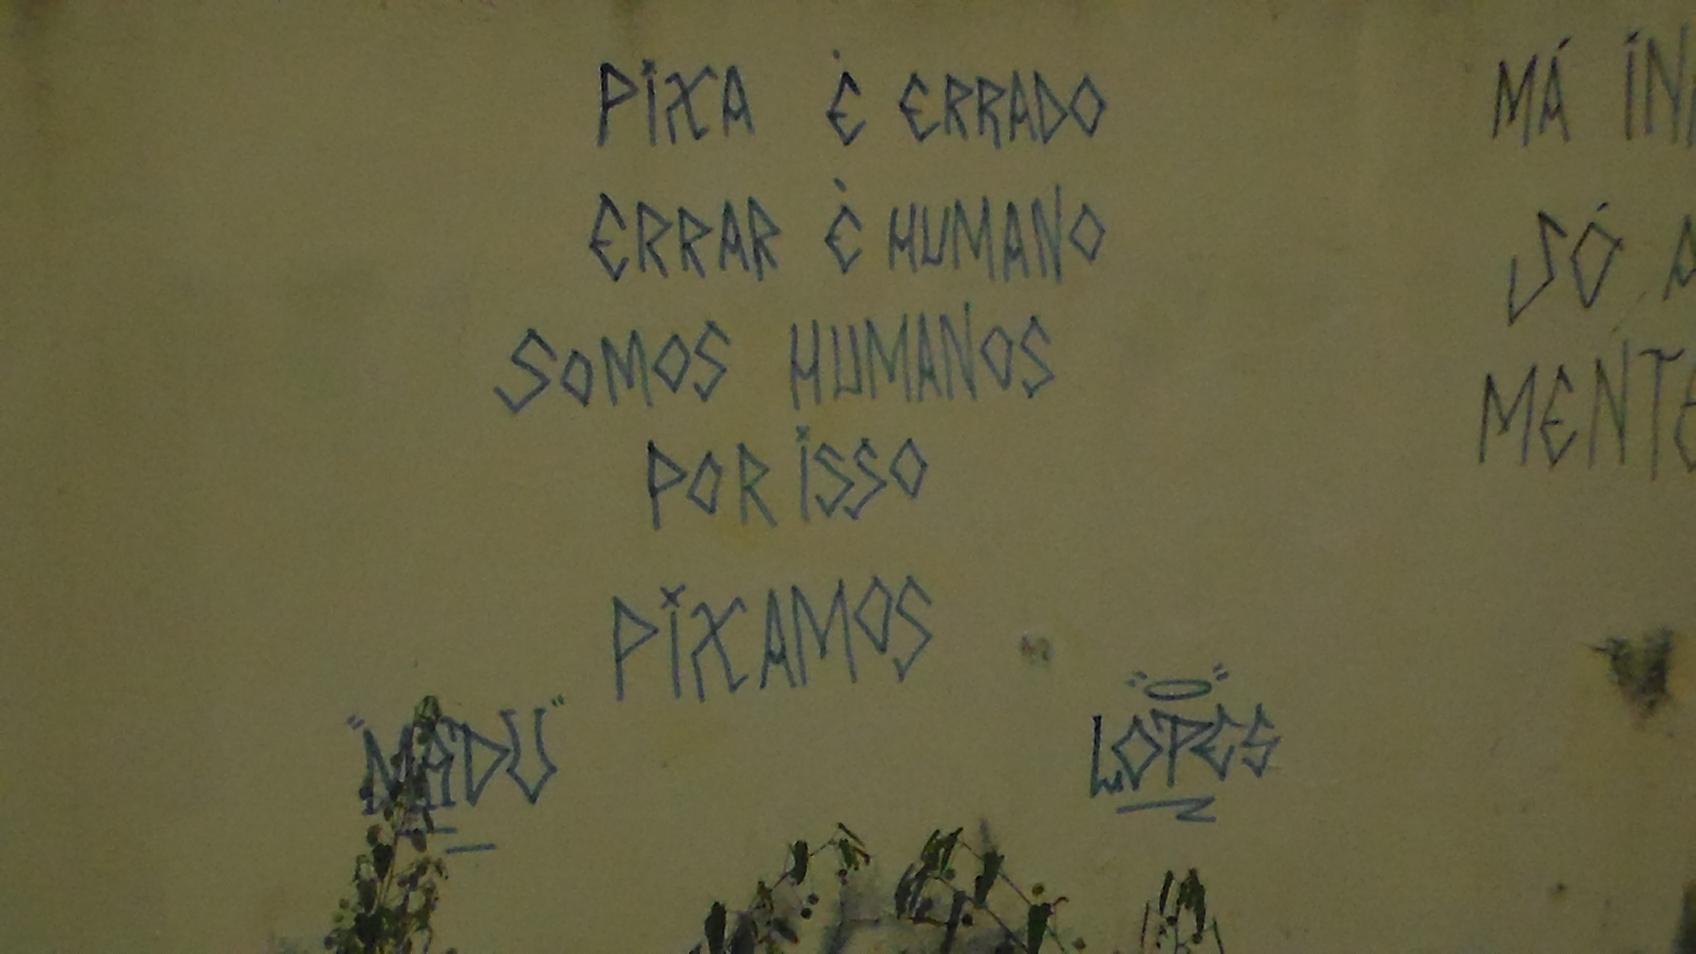 PIXA È ERRADO
ERRAR È HUMANO
SOMOS HUMANOS
POR ISSO
PIXAMOS
"MADU"
LOPES
MÁ
SÓ